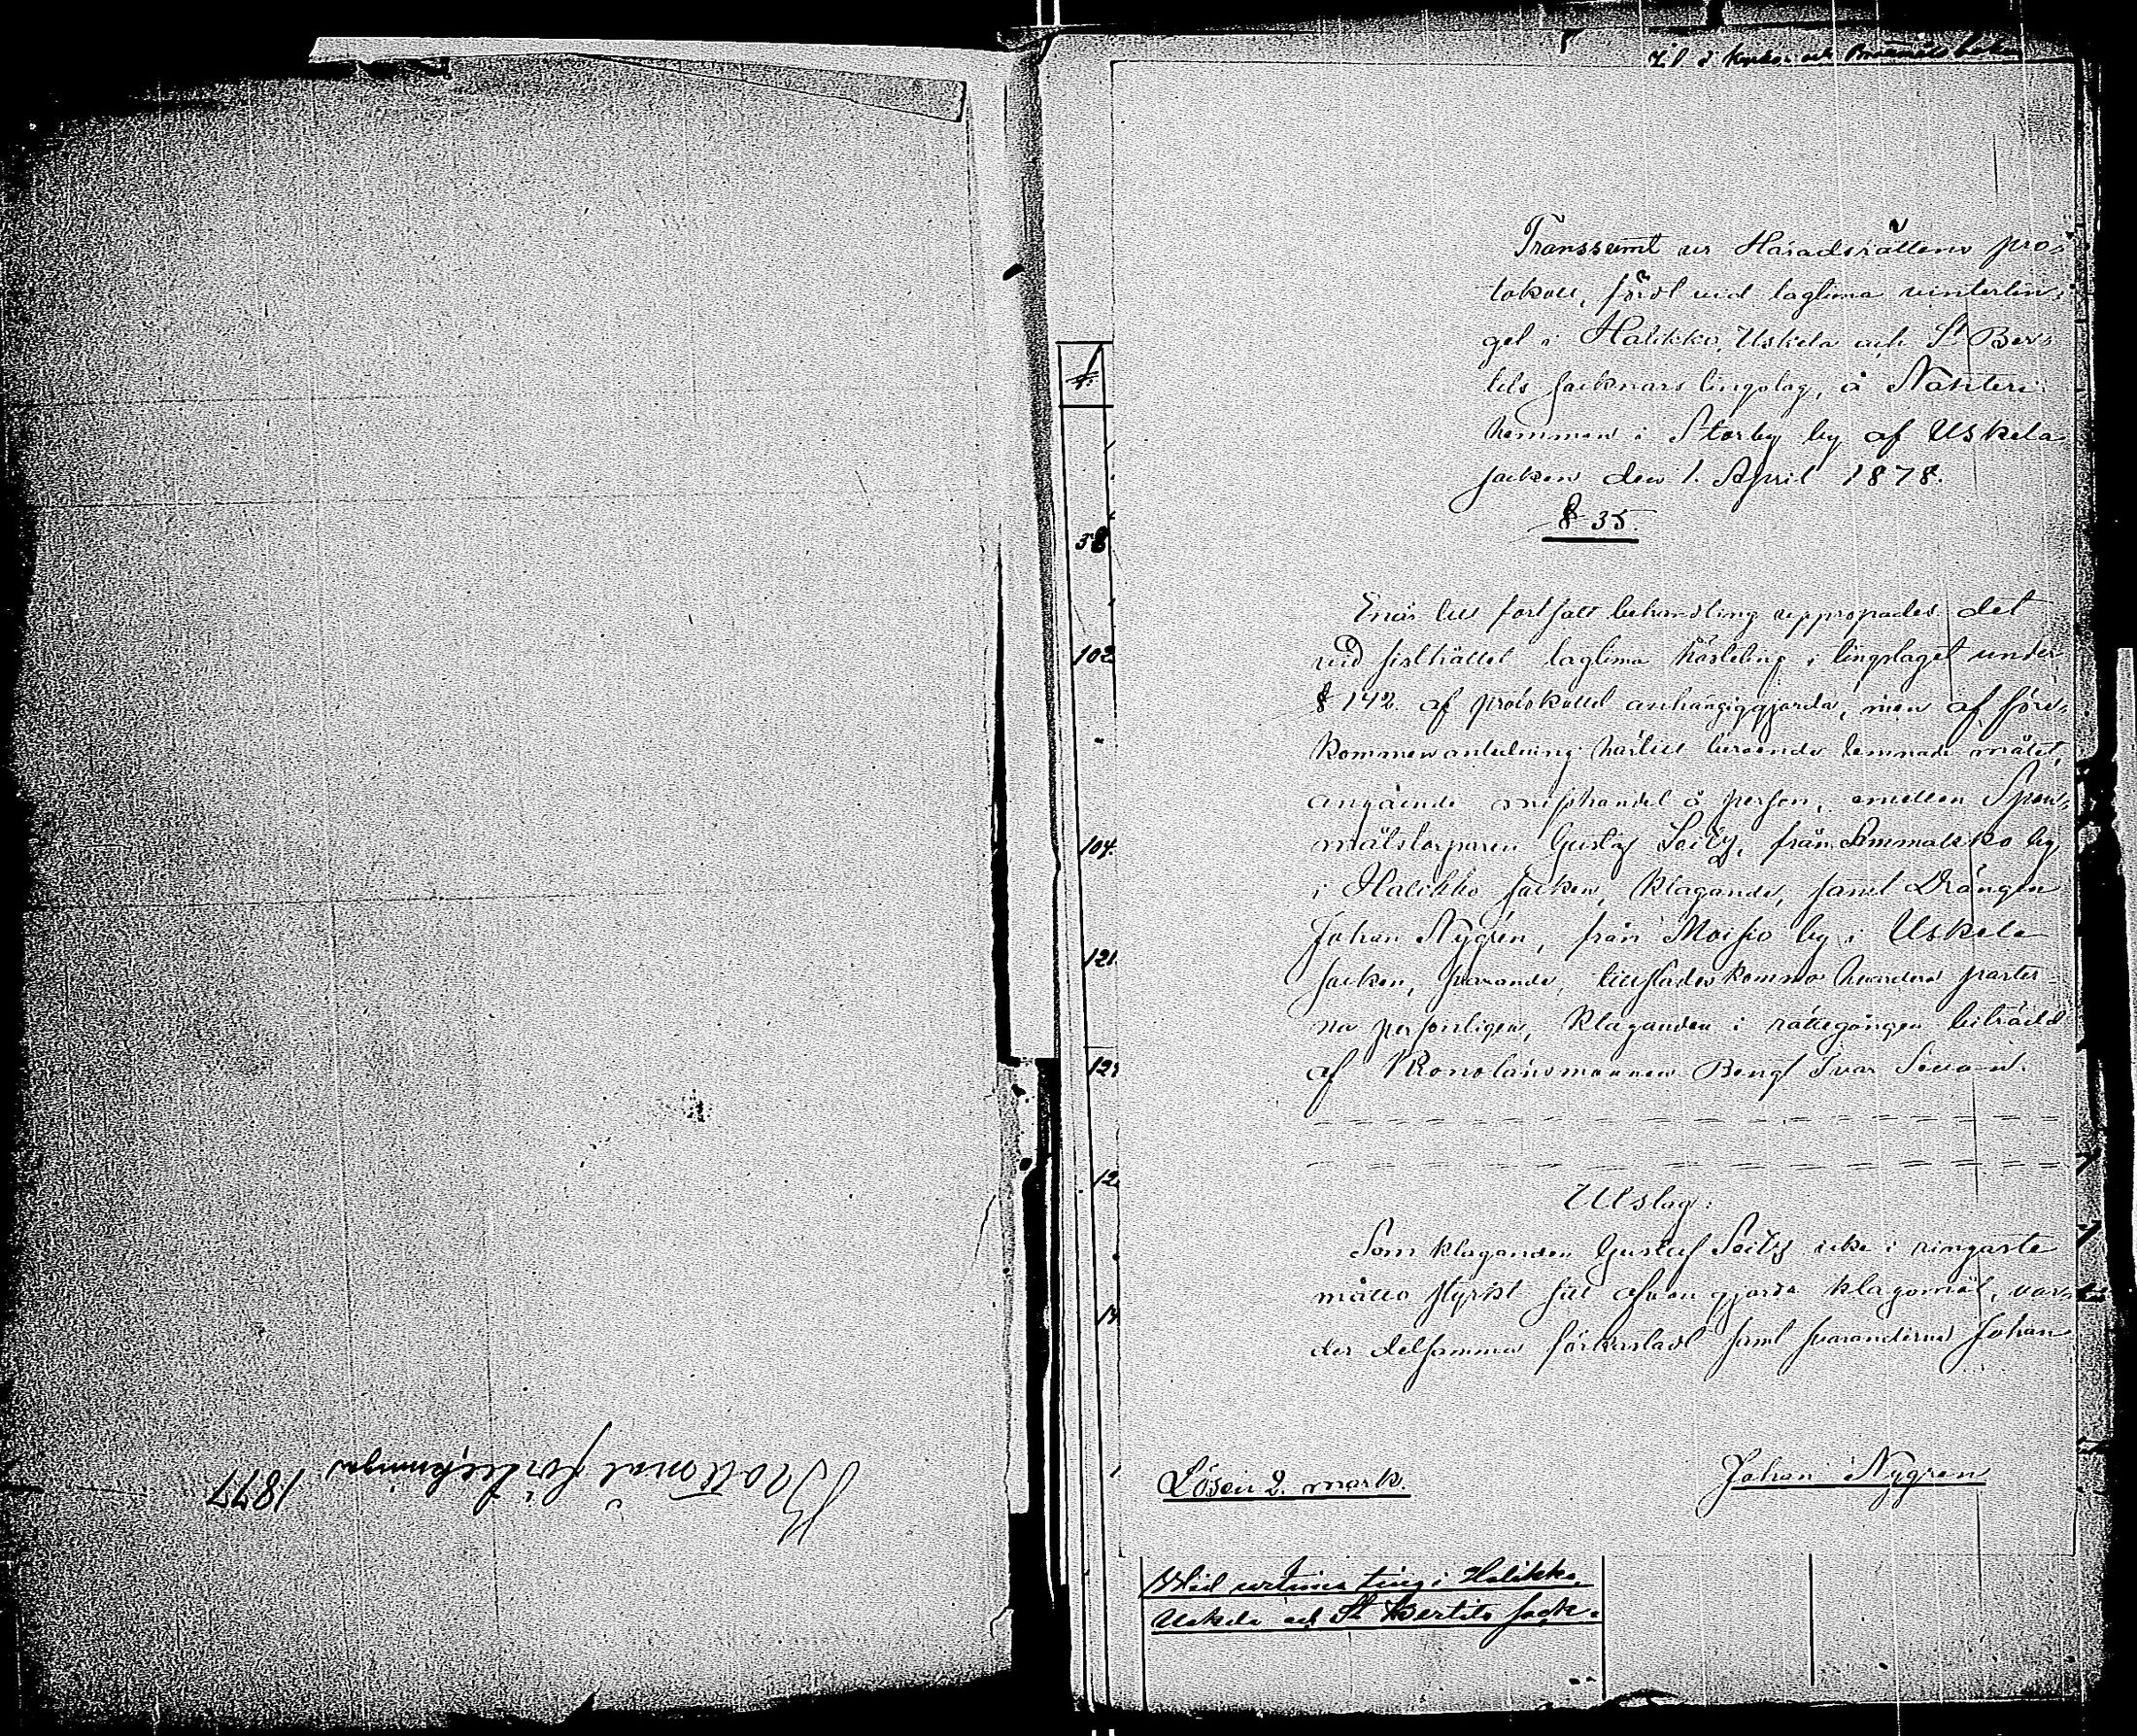 Brottmål förteckningar 1877
Transsumt ur Häradsrättens pro-
tokoll, fördt vid lagtima vintertin-
get i Halikko, Uskela och St Ber-
tils socknars tingslag, å Näkteri
hemman i Storby by af Uskela
socken den 1. April 1878.
§ 35.
Enär till fortsatt behandling uppropades det
vid sisthållet lagtima höstting i tingslaget under
§ 142. af protokollet anhängiggjorda, men af före-
kommen anledning härtill beroende lemnade målet,
angående misshandel å person, emellan Span-
målstorparen Gustaf Seily, från by
i Halikko socken, klagande, samt Drängen
Johan Nygren, från Moisio by i Uskela
socken, svarande, tillstädeskommo hvardera parter-
na personligen, klaganden i rättegången biträdd
af Kronolänsmannen Bengt Ivar
Utslag:
Som klaganden Gustaf Seily icke i ringaste
måtto styrkt sitt ofvan gjorda klagomål, var-
der detsamma förkastadt samt svaranden Johan
Lösen 2. mark.
Johan Nygren
38
102
104.
121.
12
12
14
Vid urtima ting i Halikko,
Uskela och St Bertils sock-